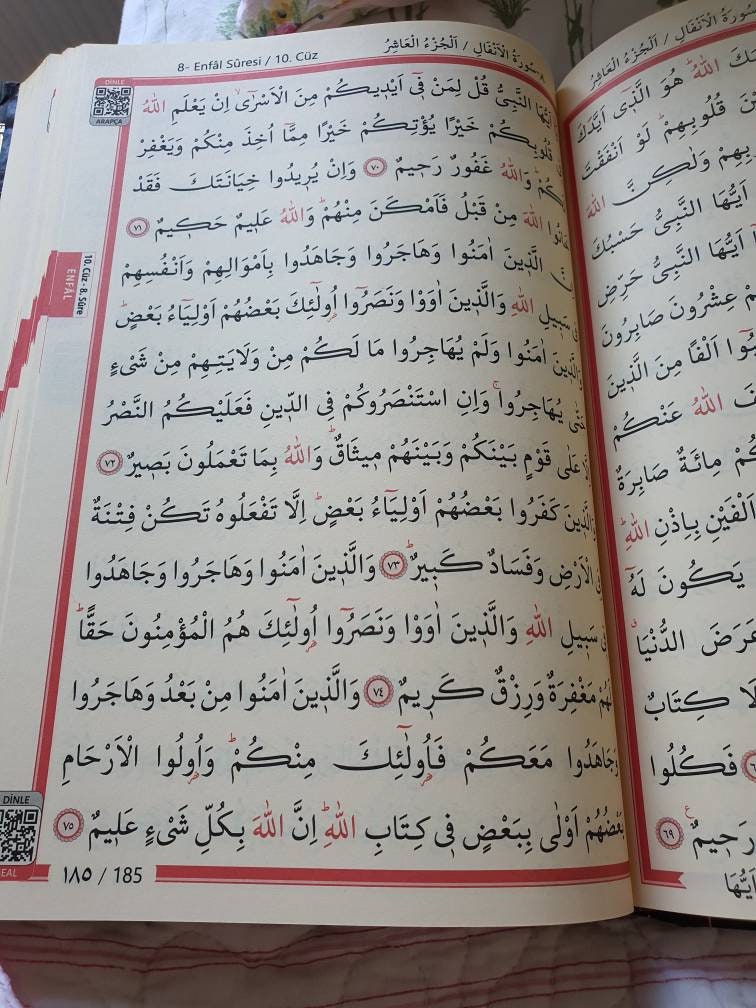 سُورَةُ الْاَنْفَالِ / اَلْجُزْءُ الْعَاشِرُ
اللّٰهُ هُوَ الَّذ۪ٓي اَيَّدَكَ
قُلُوبِهِمْۜ لَوْ اَنْفَقْتَ
وَلٰكِنَّ اللّٰهَ
اَيُّهَا النَّبِيُّ حَسْبُكَ
اَيُّهَا النَّبِيُّ حَرِّضِ
عِشْرُونَ صَابِرُونَ
اَلْفًا مِنَ الَّذ۪ينَ
اللّٰهُ عَنْكُمْ
مِائَةٌ صَابِرَةٌ
اَلْفَيْنِ بِاِذْنِ اللّٰهِۜ
يَكُونَ لَهُٓ
عَرَضَ الدُّنْيَاۗ
كِتَابٌ
فَكُلُوا
رَح۪يمٌ ﴿٦٩﴾
اَيُّهَا
8- Enfâl Sûresi / 10. Cüz
سُورَةُ الْاَنْفَالِ / اَلْجُزْءُ الْعَاشِرُ
DİNLE
ARAPÇA
اَيُّهَا النَّبِيُّ قُلْ لِمَنْ ف۪ٓي اَيْد۪يكُمْ مِنَ الْاَسْرٰىۙ اِنْ يَعْلَمِ اللّٰهُ
قُلُوبِكُمْ خَيْرًا يُؤْتِكُمْ خَيْرًا مِمَّٓا اُخِذَ مِنْكُمْ وَيَغْفِرْ
وَاللّٰهُ غَفُورٌ رَح۪يمٌ ﴿٧٠﴾ وَاِنْ يُر۪يدُوا خِيَانَتَكَ فَقَدْ
اللّٰهَ مِنْ قَبْلُ فَاَمْكَنَ مِنْهُمْۜ وَاللّٰهُ عَل۪يمٌ حَك۪يمٌ ﴿٧١﴾
الَّذ۪ينَ اٰمَنُوا وَهَاجَرُوا وَجَاهَدُوا بِاَمْوَالِهِمْ وَاَنْفُسِهِمْ
سَب۪يلِ اللّٰهِ وَالَّذ۪ينَ اٰوَوْا وَنَصَرُٓوا اُو۬لٰٓئِكَ بَعْضُهُمْ اَوْلِيَٓاءُ بَعْضٍۜ
وَالَّذ۪ينَ اٰمَنُوا وَلَمْ يُهَاجِرُوا مَا لَكُمْ مِنْ وَلَايَتِهِمْ مِنْ شَيْءٍ
حَتّٰى يُهَاجِرُواۚ وَاِنِ اسْتَنْصَرُوكُمْ فِي الدّ۪ينِ فَعَلَيْكُمُ النَّصْرُ
اِلَّا عَلٰى قَوْمٍ بَيْنَكُمْ وَبَيْنَهُمْ م۪يثَاقٌۜ وَاللّٰهُ بِمَا تَعْمَلُونَ بَص۪يرٌ ﴿٧٢﴾
وَالَّذ۪ينَ كَفَرُوا بَعْضُهُمْ اَوْلِيَٓاءُ بَعْضٍۜ اِلَّا تَفْعَلُوهُ تَكُنْ فِتْنَةٌ
فِي الْاَرْضِ وَفَسَادٌ كَب۪يرٌۜ ﴿٧٣﴾ وَالَّذ۪ينَ اٰمَنُوا وَهَاجَرُوا وَجَاهَدُوا
ف۪ي سَب۪يلِ اللّٰهِ وَالَّذ۪ينَ اٰوَوْا وَنَصَرُٓوا اُو۬لٰٓئِكَ هُمُ الْمُؤْمِنُونَ حَقًّاۜ
لَهُمْ مَغْفِرَةٌ وَرِزْقٌ كَر۪يمٌ ﴿٧٤﴾ وَالَّذ۪ينَ اٰمَنُوا مِنْ بَعْدُ وَهَاجَرُوا
وَجَاهَدُوا مَعَكُمْ فَاُو۬لٰٓئِكَ مِنْكُمْۜ وَاُو۬لُوا الْاَرْحَامِ
بَعْضُهُمْ اَوْلٰى بِبَعْضٍ ف۪ي كِتَابِ اللّٰهِۜ اِنَّ اللّٰهَ بِكُلِّ شَيْءٍ عَل۪يمٌ ﴿٧٥﴾
10. Cüz - 8. Sûre
ENFÂL
DİNLE
MEAL
١٨٥ / 185